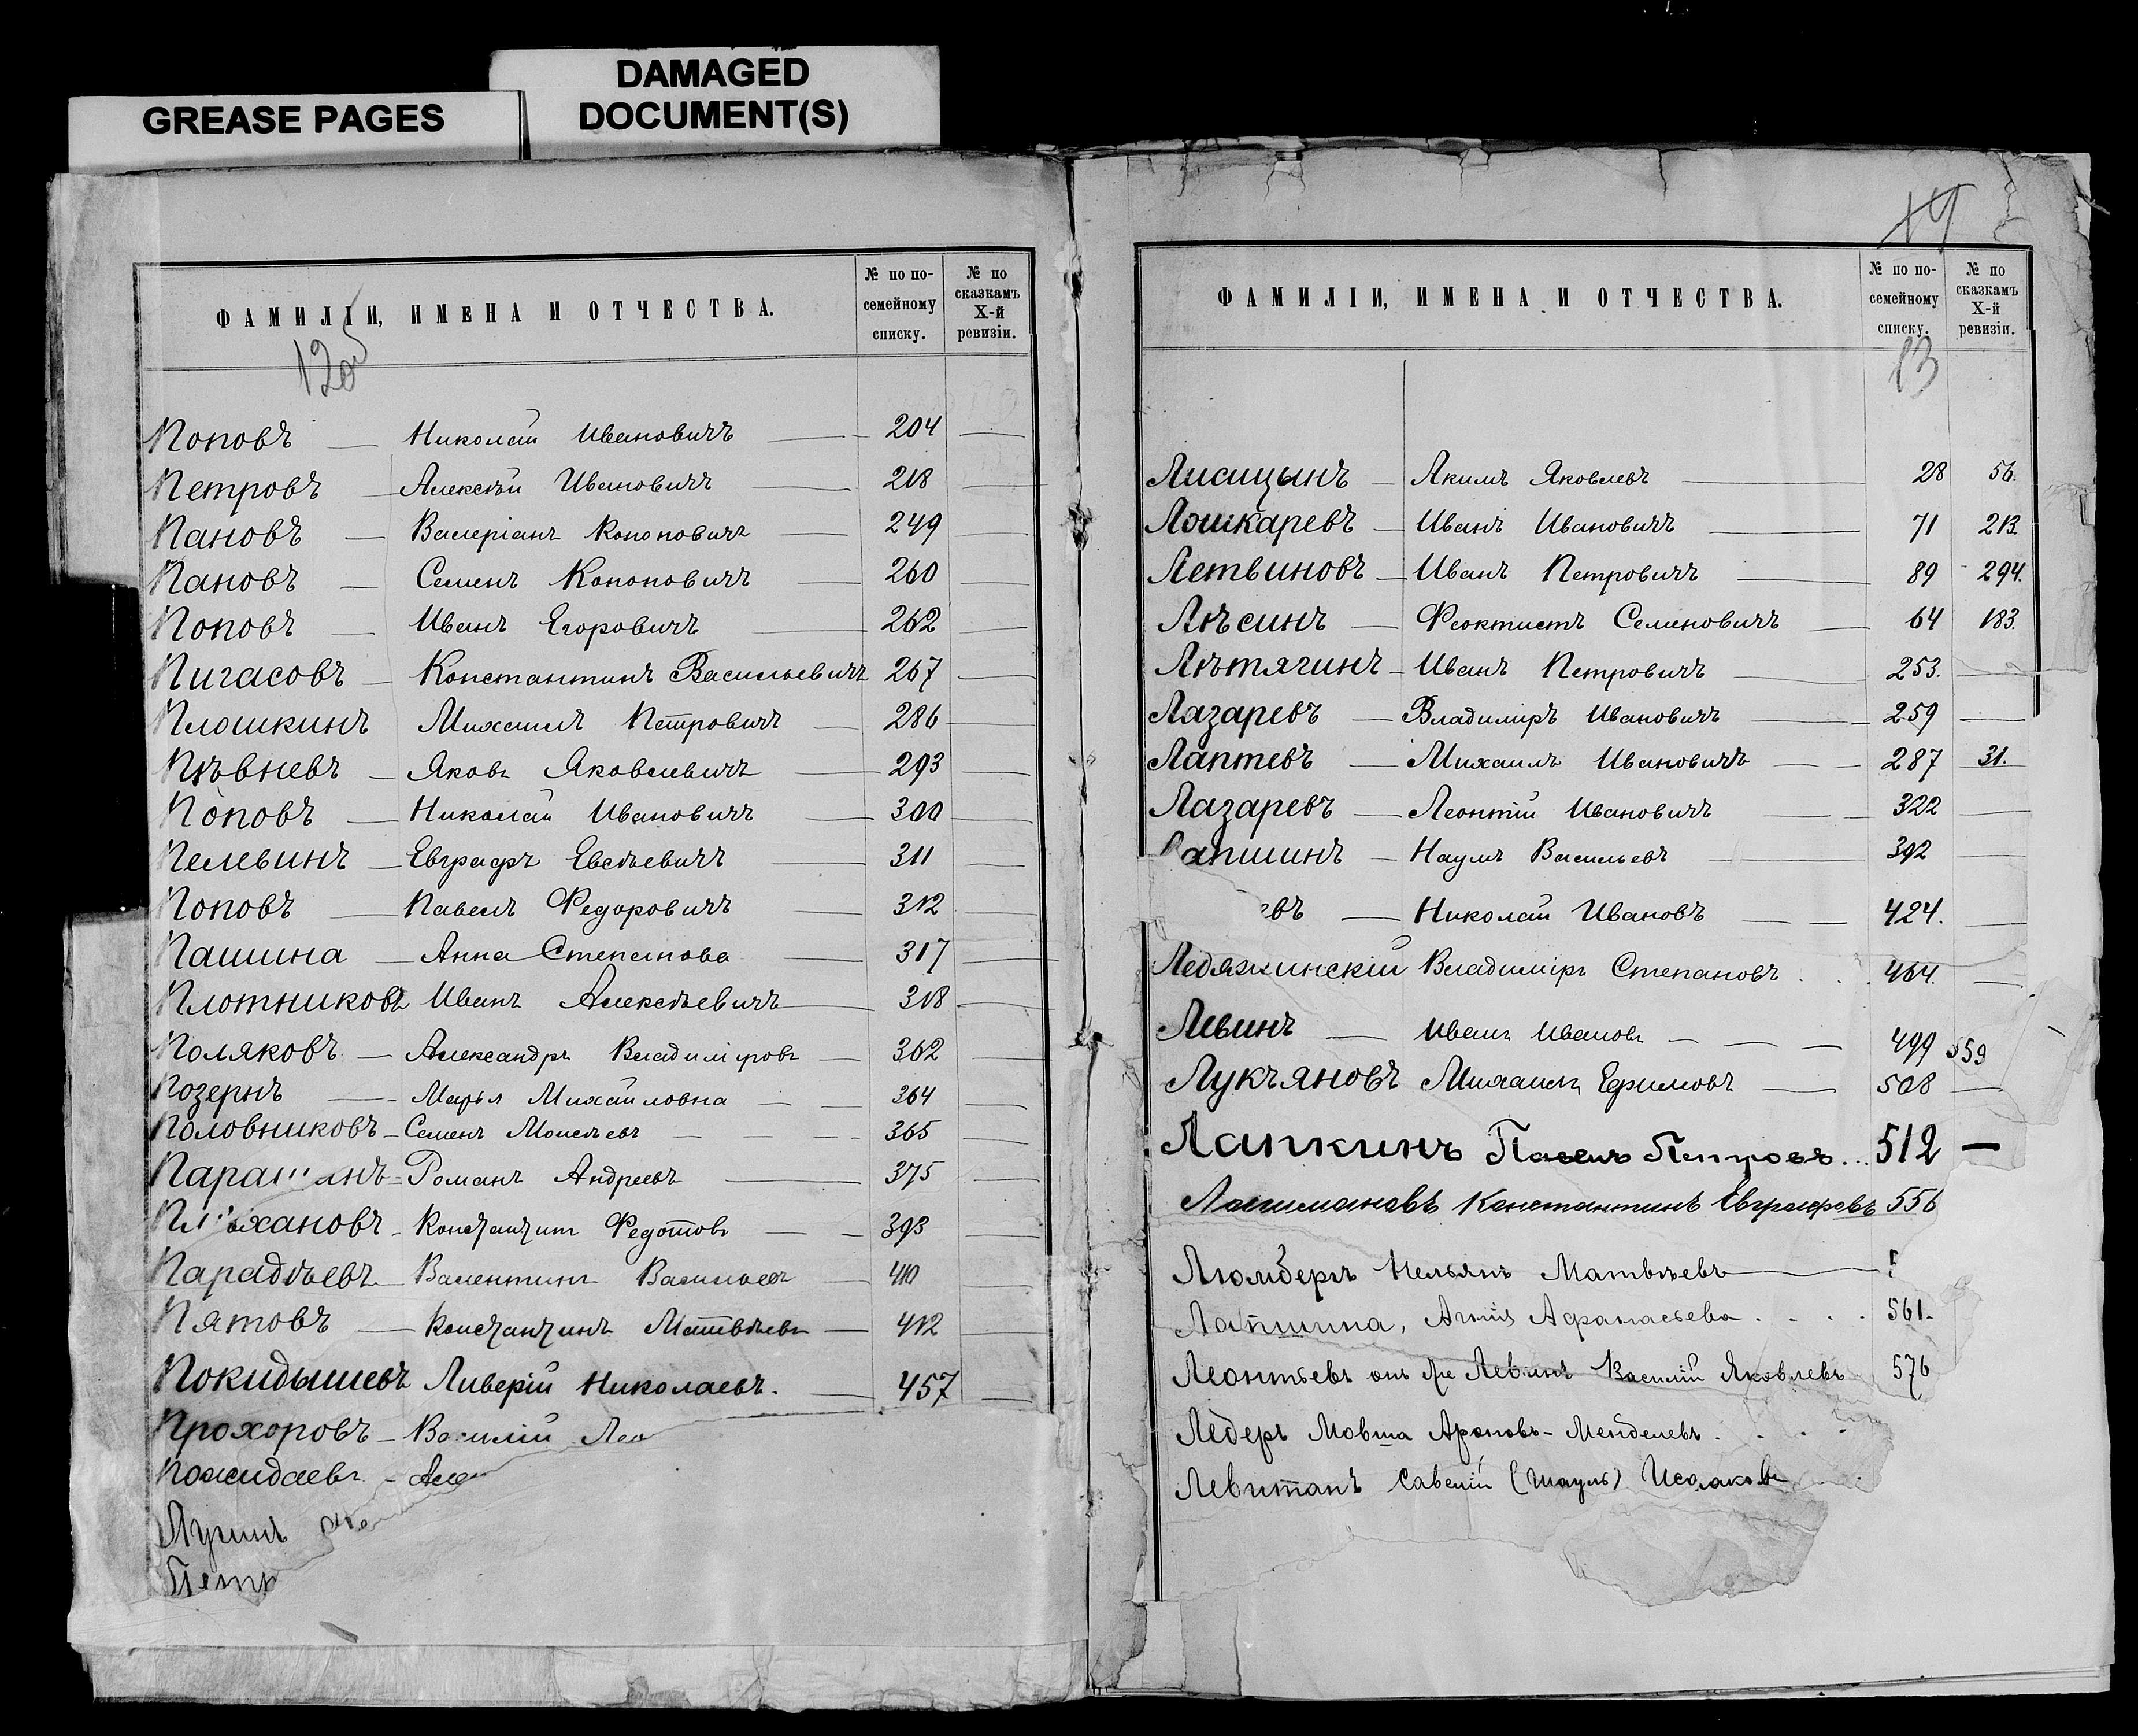 GREASE PAGES
DAMAGED
DOCUMENT(S)
ФАМИЛІИ, ИМЕНА И ОТЧЕСТВА.
№ по по-
семейному
списку.
№ по
сказкамъ
X-й
ревизіи.
12об
Поповъ — Николай Ивановичъ — 204 —
Петровъ — Алексѣй Ивановичъ — 218 —
Пановъ — Валеріанъ Кононовичъ — 249 —
Пановъ — Семенъ Кононовичъ — 260 —
Поповъ — Иванъ Егоровичъ — 262 —
Пигасовъ — Константинъ Васильевичъ 267 —
Плошкинъ Михаилъ Петровичъ — 286 —
Пѣвневъ — Яковъ Яковлевичъ — 293 —
Поповъ — Николай Ивановичъ — 300 —
Пелевинъ — Евграфъ Евсѣевичъ — 311 —
Поповъ — Павелъ Федоровичъ — 312 —
Пашина — Анна Степанова — 317 —
Плотниковъ Иванъ Алексѣевичъ — 318 —
Поляковъ — Александръ Владиміровъ — 362 —
Позернъ — Марья Михайловна — 364 —
Половниковъ — Семенъ Моисѣевъ — 365 —
Романъ Андреевъ — 375 —
Константинъ Федотовъ — 393 —
Парадѣевъ — Валентинъ Васильевъ — 410 —
Пятовъ — Константинъ Матвѣевъ — 412 —
Покидышевъ Ливерій Николаевъ. — 457 —
Прохоровъ — Василій
Пожидаевъ —
Петр
14
ФАМИЛІИ, ИМЕНА И ОТЧЕСТВА.
№ по по-
семейному
списку.
№ по
сказкамъ
X-й
ревизіи.
13
Лисицынъ — Акимъ Яковлевъ — 28 56.
Лошкаревъ — Иванъ Ивановичъ — 71 213.
Летвиновъ — Иванъ Петровичъ — 89 294.
Лѣсинъ — Феоктистъ Семеновичъ — 64 183.
Лѣтягинъ — Иванъ Петровичъ — 253. —
Лазаревъ — Владиміръ Ивановичъ — 259 —
Лаптевъ — Михаилъ Ивановичъ — 287 31.
Лазаревъ — Леонтій Ивановичъ — 322 —
Лапшинъ — Наумъ Васильевъ — 392 —
евъ — Николай Ивановъ — 424. —
Владиміръ Степановъ . . . 464. —
Левинъ — Иванъ Ивановъ — 499 359
Лукъяновъ Михаилъ Ефимовъ — 508 —
Лапкинъ Павелъ Петровъ... 512 —
Лашмановъ Константинъ Евграфовъ 556
Люмбергъ Матвѣевъ —
Лапшина, Афанасьева . . . . 561.
Леонтьевъ онъ же Левинъ Василій Яковлевъ 576
Ледеръ Мовша Ароновъ-Менделевъ . . . .
Левитанъ Савелій (Шауль) Исааковъ